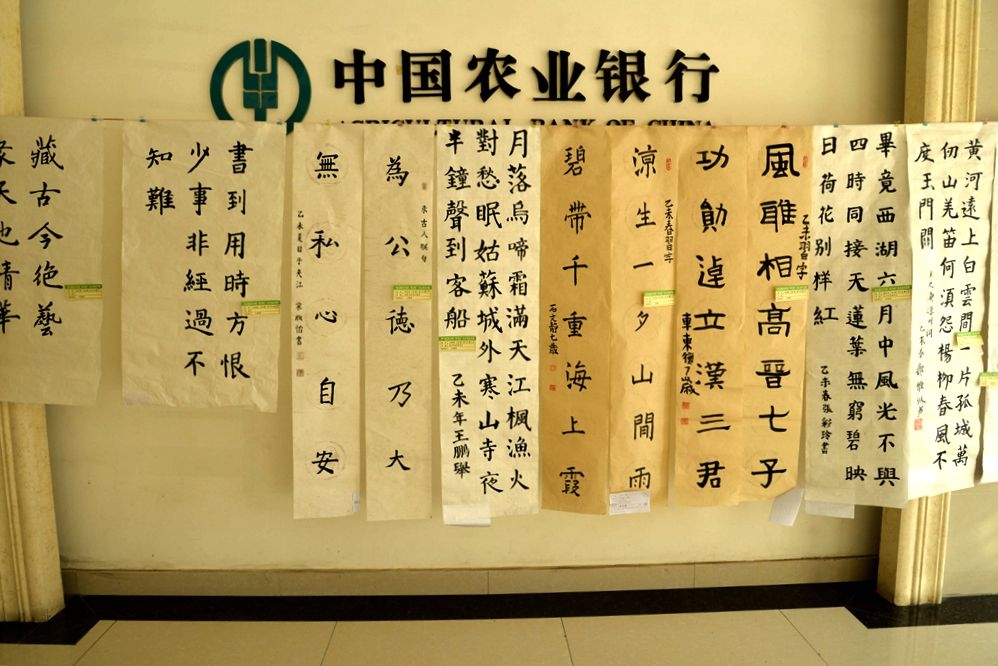 中国农业银行
AGRICULTURAL BANK OF CHINA
黄河遠上白雲間一片孤城萬
仞山羌笛何湏怨楊柳春風不
度玉門關
畢竟西湖六月中風光不與
四時同接天蓮葉無窮碧映
日荷花别樣紅
乙未春張彩玲書
風雅相髙晉七子
乙未習字
功勛逴立漢三君
涼生一夕山間雨
乙未春習字
碧帶千重海上霞
石文静七歲
月落烏啼霜滿天江楓漁火
對愁眠姑蘇城外寒山寺夜
半鐘聲到客船
乙未年王鵬舉
為公德乃大
录古人联句
無私心自安
書到用時方恨
少事非經過不
知難
藏古今絶藝
天地精華